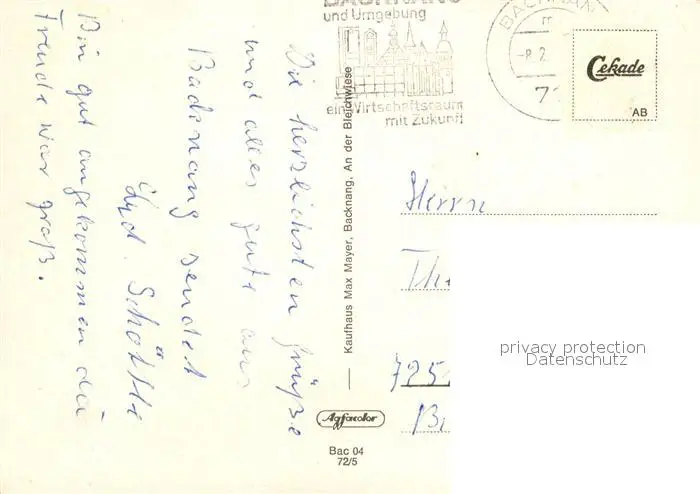 BACKNANG
und Umgebung
ein Wirtschaftsraum
mit Zukunft
BACKNANG
71
Cekade
AB
Die herzlichsten Grüße
und alles gute aus
Backnang sendet
Lyd. Schöttle
Bin gut angekommen die
Freude war groß.
Kaufhaus Max Mayer, Backnang, An der Bleichwiese
Herrn
Th
725
Agfacolor
Bac 04
72/5
privacy protection
Datenschutz